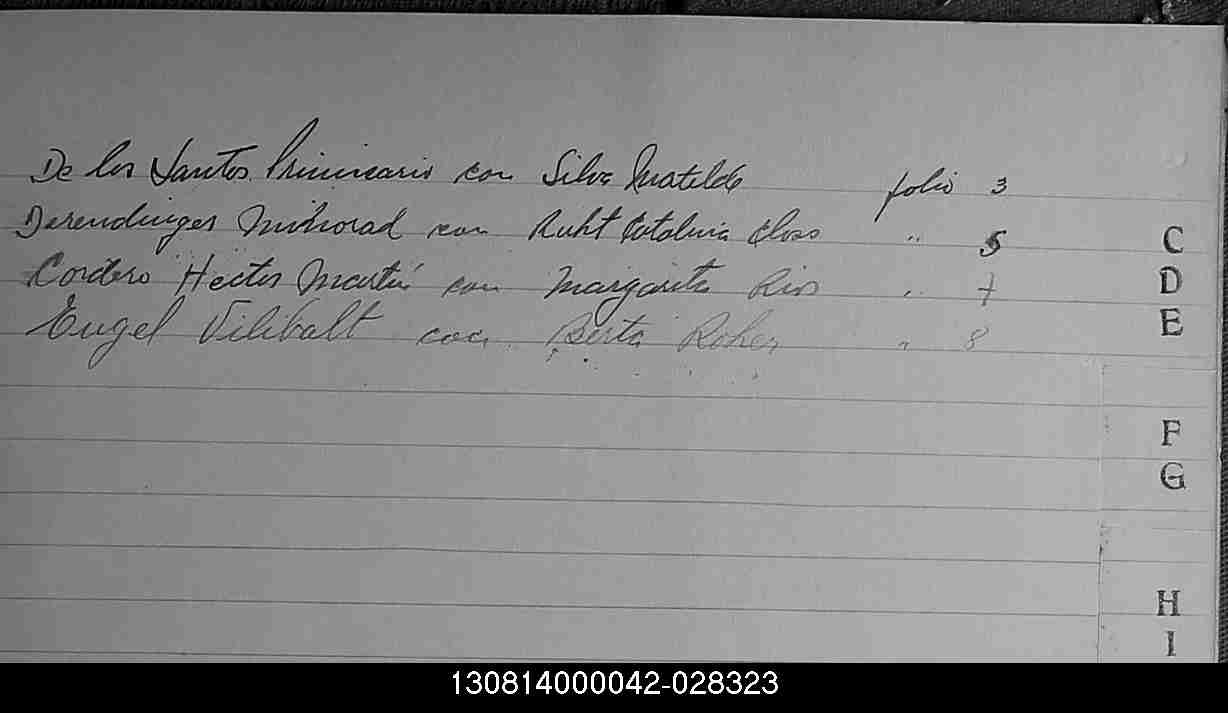 De los Santos Primisario con Silva Matilde folio 3
Derendinger con Ruht Catalina " 5
Cordero Hector Martín con Margarita Rios " 7
Engel Vilibalt con Berta Roher " 8
C
D
E
F
G
H
I
130814000042-028323